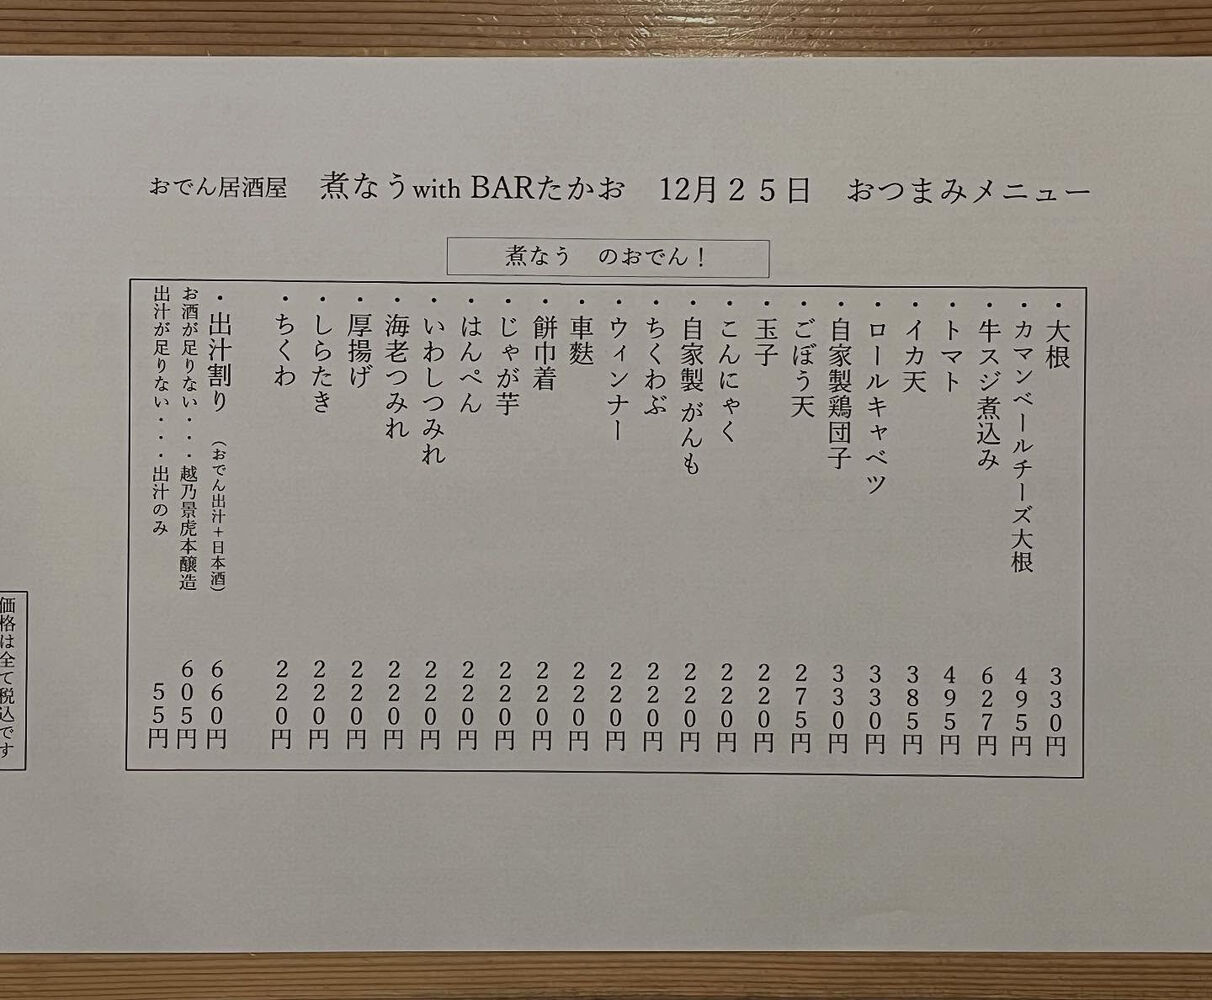 おでん居酒屋　煮なうwith BARたかお　12月２５日　おつまみメニュー
煮なう　のおでん！
・大根　330円
・カマンベールチーズ大根　495円
・牛スジ煮込み　627円
・トマト　495円
・イカ天　385円
・ロールキャベツ　330円
・自家製鶏団子　330円
・ごぼう天　275円
・玉子　220円
・こんにゃく　220円
・自家製 がんも　220円
・ちくわぶ　220円
・ウィンナー　220円
・車麩　220円
・餅巾着　220円
・じゃが芋　220円
・はんぺん　220円
・いわしつみれ　220円
・海老つみれ　220円
・厚揚げ　220円
・しらたき　220円
・ちくわ　220円
・出汁割り　（おでん出汁＋日本酒）　660円
お酒が足りない・・・越乃景虎本醸造　605円
出汁が足りない・・・出汁のみ　55円
価格は全て税込です